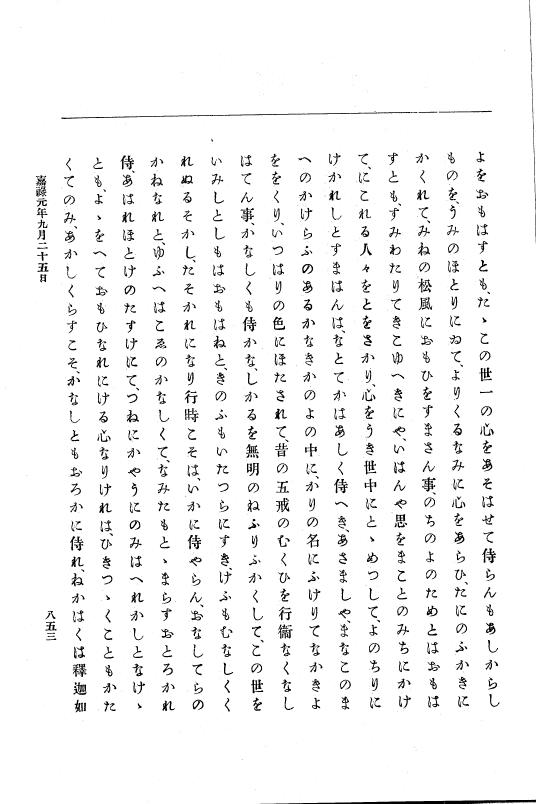 よをおもはすとも、たゝこの世一の心をあそはせて侍らんもあしからし
ものを、うみのほとりにゐて、よりくるなみに心をあらひ、たにのふかきに
かくれて、みねの松風におもひをすまさん事、のちのよのためとはおもは
すとも、すみわたりてきこゆへきにや、いはんや思をまことのみちにかけ
て、にこれる人々をとをさかり、心をうき世中にとゝめつして、よのちりに
けかれしとすまはんは、なとてかはあしく侍へき、あさましや、まなこのま
へのかけらふのあるかなきかのよの中に、かりの名にふけりてなかきよ
ををくり、いつはりの色にほたされて、昔の五戒のむくひを行衞なくなし
はてん事、かなしくも侍かな、しかるを無明のねふりふかくして、この世を
いみしとしもはおもはねと、きのふもいたつらにすき、けふもむなしくく
れぬるそかし、たそかれになり行時こそは、いかに侍やらん、おなしてらの
かねなれと、ゆふへはこゑのかなしくて、なみたもとゝまらすおとろかれ
侍、あはれほとけのたすけにて、つねにかやうにのみはへれかしとなけゝ
とも、よゝをへておもひなれにける心なりけれは、ひきつゝくこともかた
くてのみ、あかしくらすこそ、かなしともおろかに侍れ、ねかはくは釋迦如
嘉祿元年九月二十五日
八五三